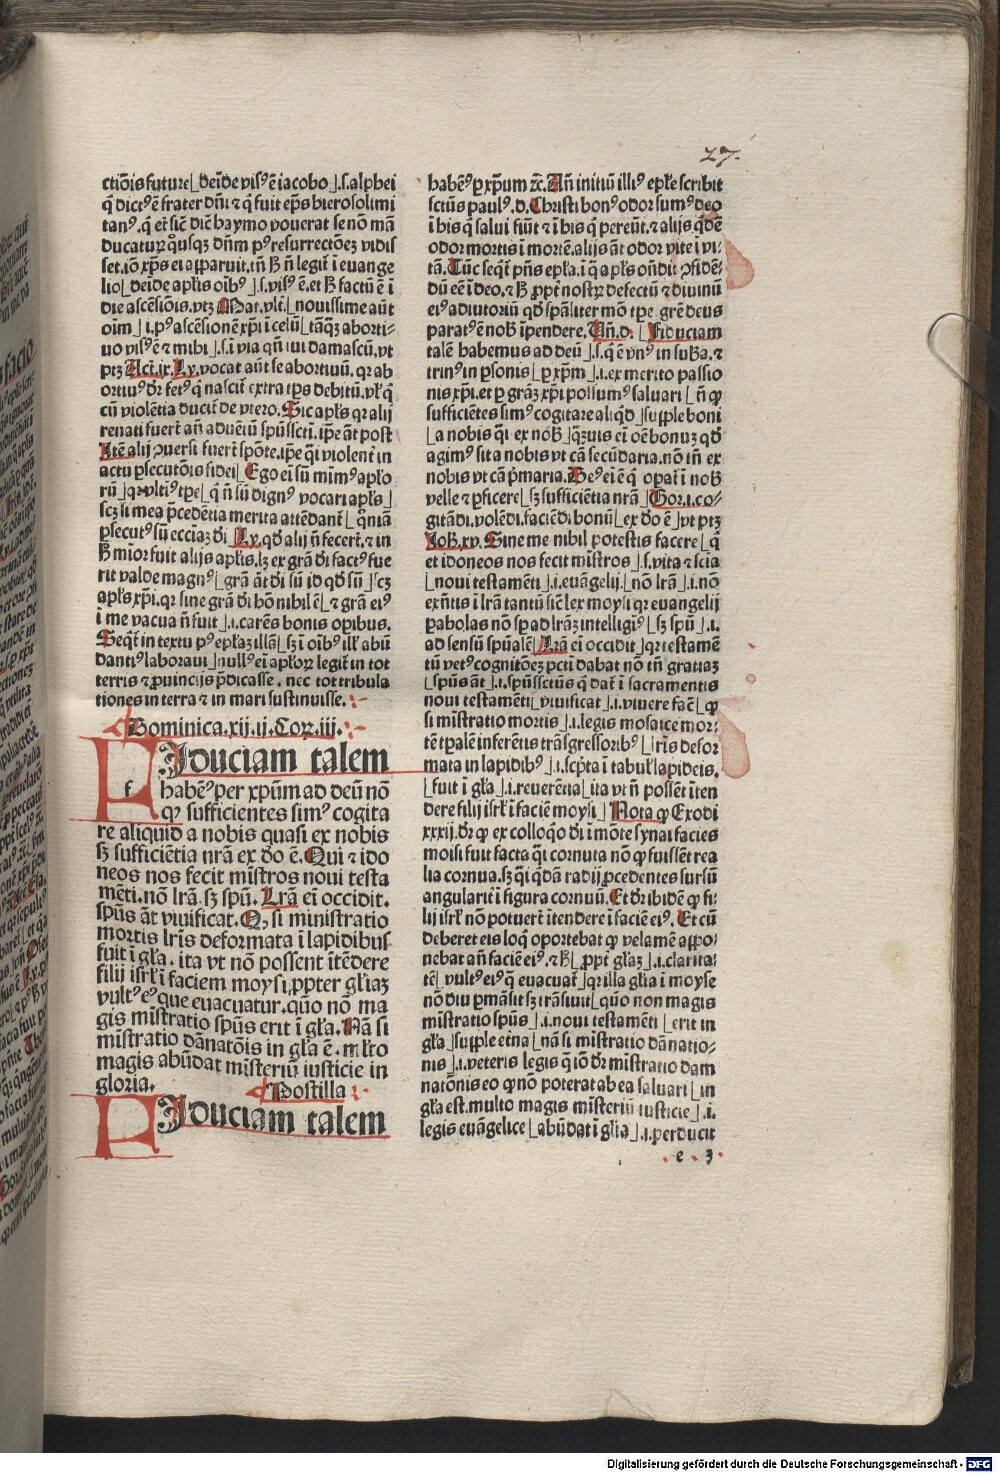 27.
ctiōis future ⌊deīde visꝰ ē iacobo⌋ .s. alphei
q̄ dictꝰ ē frater dn̄i ⁊ q̄ fuit ep̄s hierosolimi
tanꝰ. q̄ et sic̄ dic̄ haymo vouerat se nō mā
ducaturꝝ q̊usqꝫ dn̄m pꝰ resurrectōeꝫ vidis
set. iō xp̄s ei apparuit. tn̄ ꝧ n̄ legit̄ ī euange
lio ⌊deīde apl̄is oībꝰ⌋ .s. visꝰ ē. et ꝧ factū ē ī
die ascēsiōis. vtꝫ Mat. vlt̄. ⌊nouissime aūt
oīm⌋ .i. pꝰ ascēsionē xp̄i ī celū ⌊tāqꝫ aborti-
uo visꝰ ē ⁊ mihi⌋ .s. ī via qn̄ iui damascū. vt
ptꝫ Act. ix. Ly. vocat aūt se abortiuū. qꝛ ab
ortiuꝰ dr̄ fetꝰ q̄ nascit̄ extra tꝑs debitū. vl̓ q̄
cū violētia ducit̄ de vtero. Sic apl̄s qꝛ alij
renati fuert̄ an̄ aduētū spūssctī. ip̄e āt post
Itē alij ꝯuersi fuert̄ spōte. ip̄e q̄i violent̄ in
actu ꝑsecutōis fidei⌊ Ego ei sū mīmꝰ apl̄o
rū⌋ qꝛ vltīꝰ tꝑe ⌊q̄ n̄ sū dignꝰ vocari apl̄s⌋
scꝫ si mea p̄cedētia merita attēdant̄ ⌊qm̄
ꝑsecutꝰ sū ecciaꝫ dī⌋ Ly. qd̓ alij n̄ fecert̄. ⁊ in
ꝧ mīor fuit alijs apl̄is. lꝫ ex grā dī factꝰ fue
rit valde magnꝰ ⌊grā āt dī sū id qd̓ sū⌋ scꝫ
apl̄s xp̄i. qꝛ sine grā dī hō nihil ē ⌊⁊ grā eiꝰ
ī me vacua n̄ fuit⌋ .i. carēs bonis oꝑibus.
Seqt̄ in textu pꝰ ep̄laꝫ illā⌊ sꝫ ī oībꝰ ill̓ abū
dantiꝰ laboraui⌋ nullꝰ ei apl̄oꝝ legit̄ in tot
terris ⁊ ꝓuincijs p̄dicasse. nec tot tribula
tiones in terra ⁊ in mari sustinuisse.
Dominica. xij. ij. Coꝝ. iij.
FIduciam talem
habēꝰ per xp̄um ad deū nō
qꝙ sufficientes simꝰ cogita
re aliquid a nobis quasi ex nobis
sꝫ sufficiētia nrā ex dō ē. Qui ⁊ ido
neos nos fecit mīstros noui testa
mēti. nō lrā. sꝫ spū. Lrā ei occidit.
spūs āt viuificat. Qꝙ si ministratio
mortis lrīs deformata ī lapidibus
fuit ī gl̄a. ita vt nō possent ītēdere
filij isrl̄ ī faciem moysi ꝓpter gl̄iaꝫ
vultꝰ eꝰ que euacuatur. quō nō ma
gis mīstratio spūs erit ī gl̄a. Nā si
mīstratio dānatōis in gl̄a ē. ml̄to
magis abūdat misteriū iusticie in
gloria.
Postilla
FIduciam talem
habēꝰ ꝑ xp̄um ⁊c. An̄ initiū illiꝰ ep̄le scribit
sctūs paulꝰ. d. Christi bonꝰ odor sumꝰ deo
ī his q̄ salui fiūt ⁊ ī his q̄ pereūt. ⁊ alijs q̄dē
odor mortis ī mortē. alijs āt odor vite ī vi-
tā. Tūc seqt̄ pn̄s ep̄la. ī q̄ apl̄s on̄dit ꝯfidē-
dū eē ī deo. ⁊ ꝧ ꝓpt̄ nostrꝫ defectū ⁊ diuinū
eiꝰ adiutoriū qd̓ spāliter mō tꝑe grē deus
paratꝰ ē nob̄ īpendere. Un̄. d. ⌊Fiduciam
talē habemus ad deū⌋ .s. q̄ ē vnꝰ in sub̄a. ⁊
trinꝰ in ꝑsonis ⌊ꝑ xp̄m⌋ .i. ex merito passio
nis xp̄i. et ꝑ grāꝫ xp̄i possumꝰ saluari ⌊n̄ ꝙ
sufficiētes simꝰ cogitare aliq̄d⌋ supple boni
⌊a nobis q̄i ex nob̄⌋ q̄ꝫuis ei oē bonuꝫ qd̓
agimꝰ sit a nobis vt cā secūdaria. nō tn̄ ex
nobis vt cā p̄maria. Deꝰ ei ē q̄ oꝑat̄ ī nob̄
velle ⁊ ꝑficere ⌊sꝫ sufficiētia nrā⌋ Cor. i. co-
gitādi. volēdi. faciēdi bonū ⌊ex dō ē⌋ vt ptꝫ
Joh̄. xv. Sine me nihil potestis facere ⌊q̄
et idoneos nos fecit mīstros⌋ .s. vita ⁊ scia
⌊noui testamēti⌋ .i. euāgelij. ⌊nō lrā⌋ .i. nō
exn̄tis ī lrā tantū sic̄ lex moysi qꝛ euangelij
ꝑabolas nō sꝑ ad lrāꝫ intelligiꝰ ⌊sꝫ spū⌋ .i.
ad sensū spūalē ⌊Lrā ei occidit⌋ qꝛ testamē
tū vetꝰ cognitōeꝫ pctī dabat nō tn̄ gratiaꝫ
⌊spūs āt⌋ .i. spūssctūs q̄ dat̄ ī sacramentis
noui testamēti ⌊viuificat⌋ .i. viuere fac̄ ⌊ꝙ
si mīstratio mortis⌋ .i. legis mosaice mor-
tē tꝑalē inferētis trāsgressoribꝰ ⌊lrīs defor
mata in lapidibꝰ⌋ .i. scp̄ta ī tabul̓ lapideis.
⌊fuit ī gl̄a⌋ .i. reuerētia ⌊ita vt n̄ possēt īten
dere filij isrl̄ ī faciē moysi⌋ Nota ꝙ Exodi
xxxij. dr̄ ꝙ ex colloq̊o dī ī mōte synai facies
moisi fuit facta q̄i cornuta nō ꝙ fuissēt rea
lia cornua. sꝫ q̄i q̄dā radij ꝓcedentes sursū
angularit̄ ī figura cornuū. Et dr̄ ibidē ꝙ fi-
lij isrl̄ nō potuert̄ ītendere ī faciē eiꝰ. Et cū
deberet eis loq̄ oportebat ꝙ velamē appo-
nebat an̄ faciē eiꝰ. ⁊ ꝧ ⌊ꝓpt̄ gl̄aꝫ⌋ .i. clarita-
tē ⌊vultꝰ eiꝰ q̄ euacuat̄⌋ qꝛ illa gl̄ia ī moyse
nō diu ꝑmāsit sꝫ trāsiuit ⌊quō non magis
mīstratio spūs⌋ .i. noui testamēti ⌊erit in
gl̄a⌋ supple etna ⌊nā si mīstratio dānatio-
nis⌋ .i. veteris legis q̄ iō dr̄ mīstratio dam
natōnis eo ꝙ nō poterat ab ea saluari ⌊in
gl̄a est. multo magis misteriū iusticie⌋ .i.
legis euāgelice ⌊abūdat ī gl̄ia⌋ .i. perducit
e 3
Digitalisierung gefördert durch die Deutsche Forschungsgemeinschaft - DFG